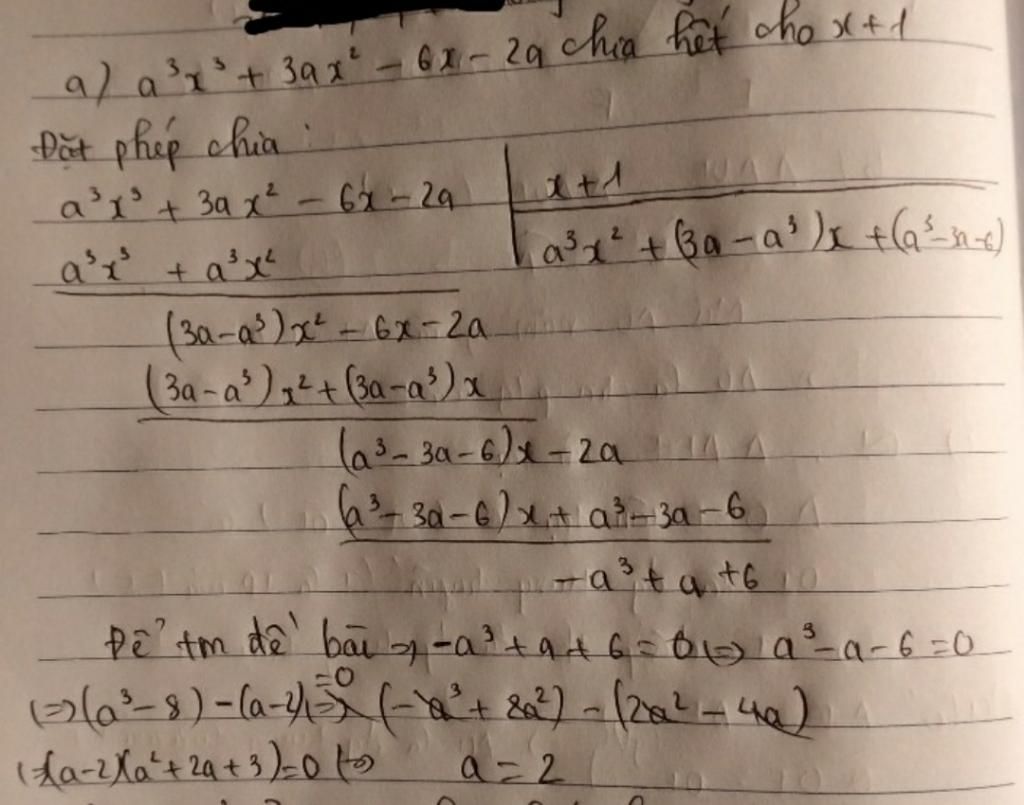 a) a³x³ + 3ax² - 6x - 2a chia hết cho x+1
Đặt phép chia :
a³x³ + 3ax² - 6x - 2a | x+1
a³x³ + a³x² | a³x² + (3a - a³)x + (a³-3a-6)
(3a-a³)x² - 6x - 2a
(3a-a³)x² + (3a-a³)x
(a³- 3a-6)x - 2a
(a³- 3a-6)x + a³- 3a - 6
- a³ + a + 6
Để tm đề bài => -a³ + a + 6 = 0 <=> a³-a-6 =0
<=> (a³-8) - (a-2) =0
<=> (a-2)(a²+2a+3)=0 <=> a = 2